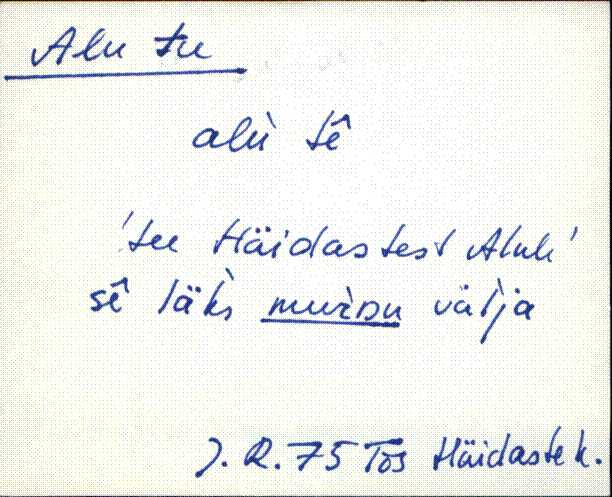 Alu tee
alù tê
'tee Häidastest Alule'
sê läks muìʀᴅu välja
J. R. 75 Tõs Häidaste k.